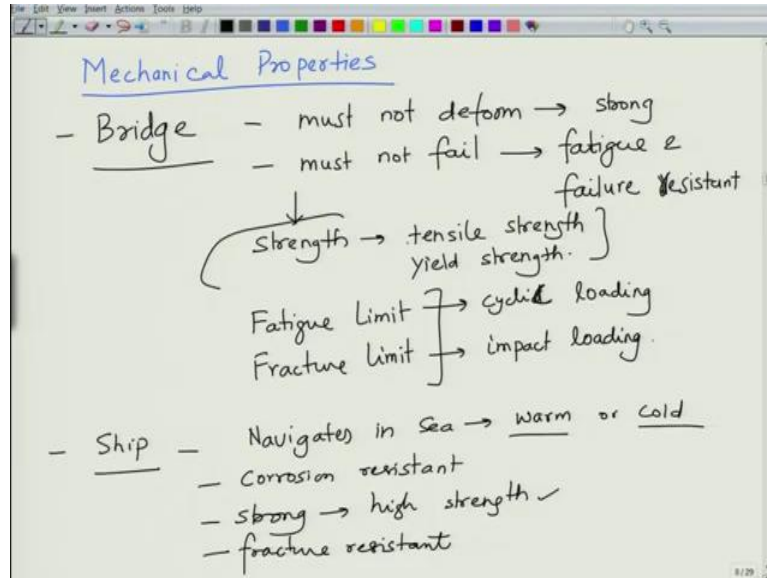 File Edit View Insert Actions Tools Help
Mechanical Properties
- Bridge - must not deform → strong
- must not fail → fatigue &
failure resistant
↓
Strength → tensile strength
yield strength.
Fatigue Limit → cyclic loading
Fracture Limit → impact loading.
- Ship - Navigates in Sea → warm or cold
- Corrosion resistant
- strong → high strength ✓
- fracture resistant
8/29